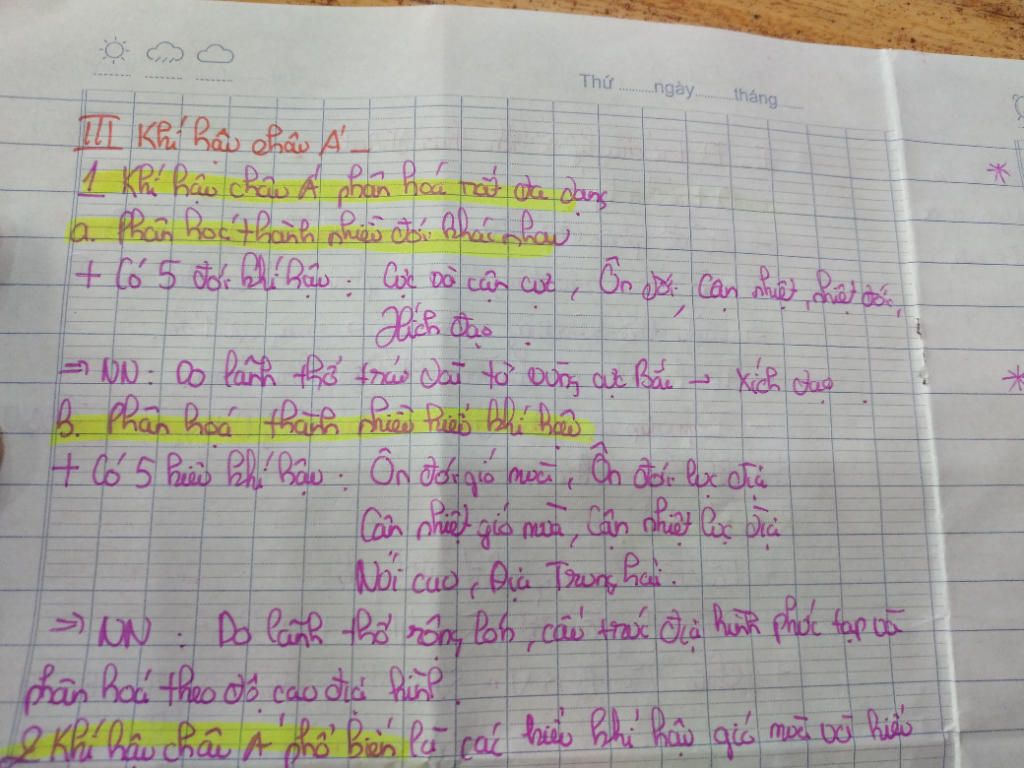 Thứ ........ngày........tháng......
III Khí hậu châu Á
1 Khí hậu châu Á phân hoá rất đa dạng
a. Phân hoá thành nhiều đới khác nhau
+ Có 5 đới khí hậu : Cực và cận cực, Ôn đới, Cận nhiệt, nhiệt đới,
Xích đạo.
=> NN : Do lãnh thổ trải dài từ vùng cực Bắc → xích đạo.
B. Phân hoá thành nhiều kiểu khí hậu
+ Có 5 kiểu khí hậu : Ôn đới gió mùa, Ôn đới lục địa
Cận nhiệt gió mùa, Cận nhiệt lục địa
Núi cao, Địa Trung hải.
=> NN : Do lãnh thổ rộng lớn, cấu trúc địa hình phức tạp và
phân hoá theo độ cao địa hình.
2 Khí hậu châu Á phổ biến là các kiểu khí hậu gió mùa và kiểu